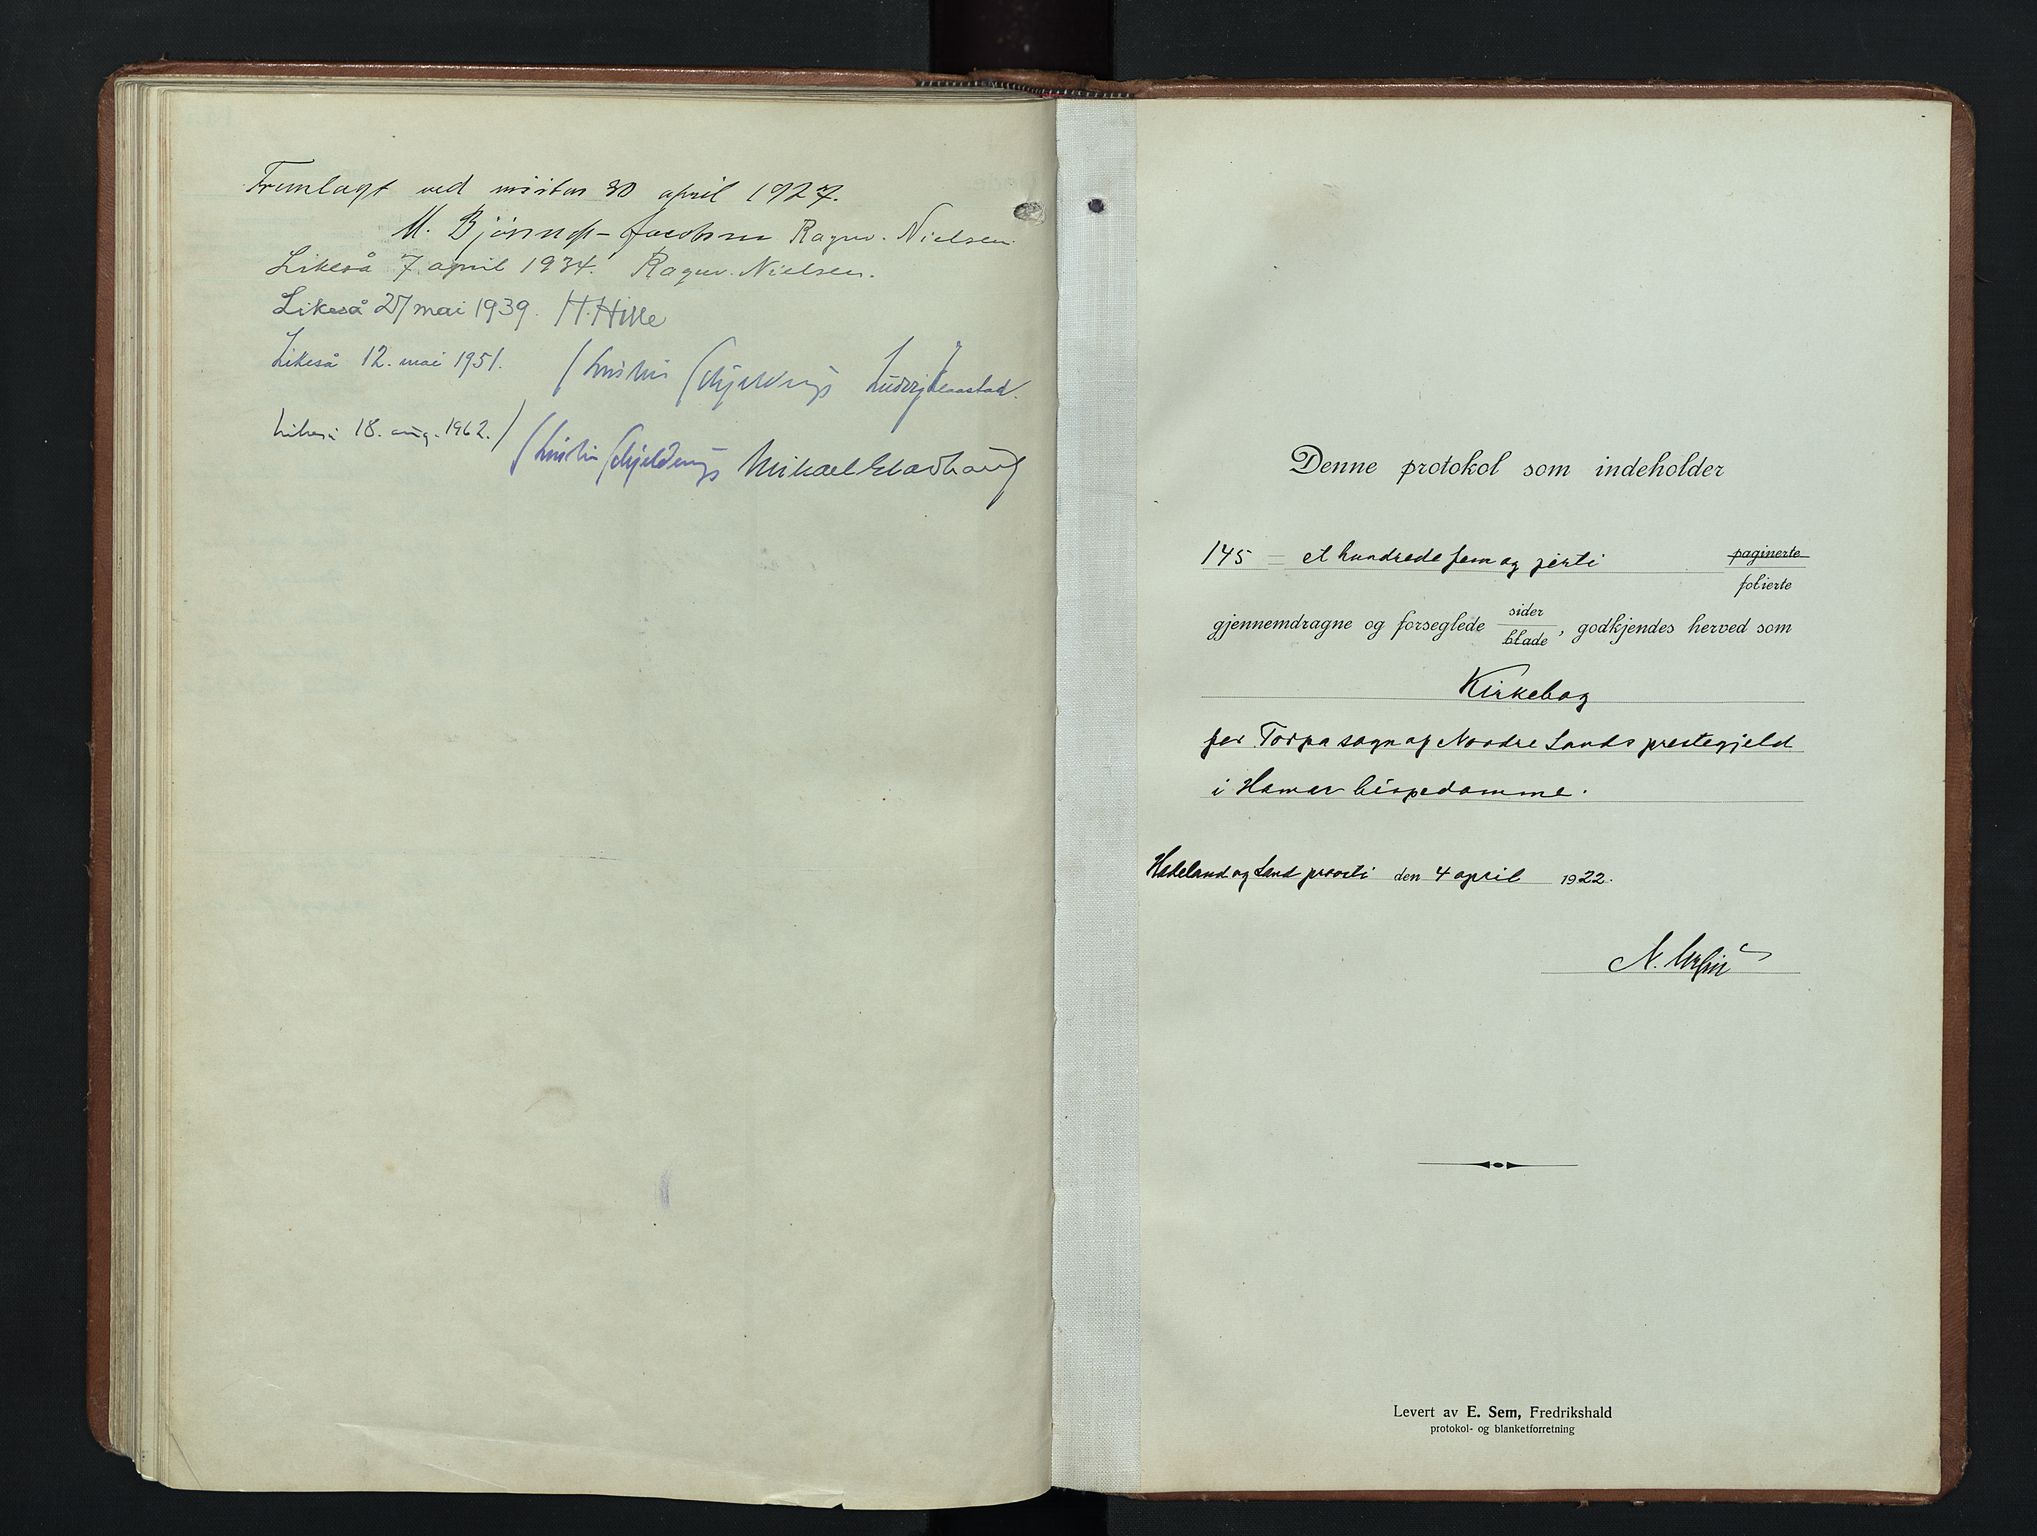 Fremlagt ved visitas 30 april 1927.
M. Bjønnes-Jacobsen Ragnv. Nielsen.
Likeså 7 april 1934. Ragnv. Nielsen.
Likeså 27 mai 1939. H. Hille
Likeså 12. mai 1951. Kristian Schjelderup Ludvig
Likeså 18. aug. 1962. Kristian Schjelderup Mikael
Denne protokol som indeholder
145 = et hundrede fem og firti paginerte
folierte
gjennemdragne og forseglede sider
blade, godkjendes herved som
Kirkebog
for Torpa sogn af Nordre Lands prestegjeld
i Hamar bispedømme.
Hadeland og Land provsti den 4 april 1922.
N.
Levert av E. Sem, Fredrikshald
protokol- og blanketforretning